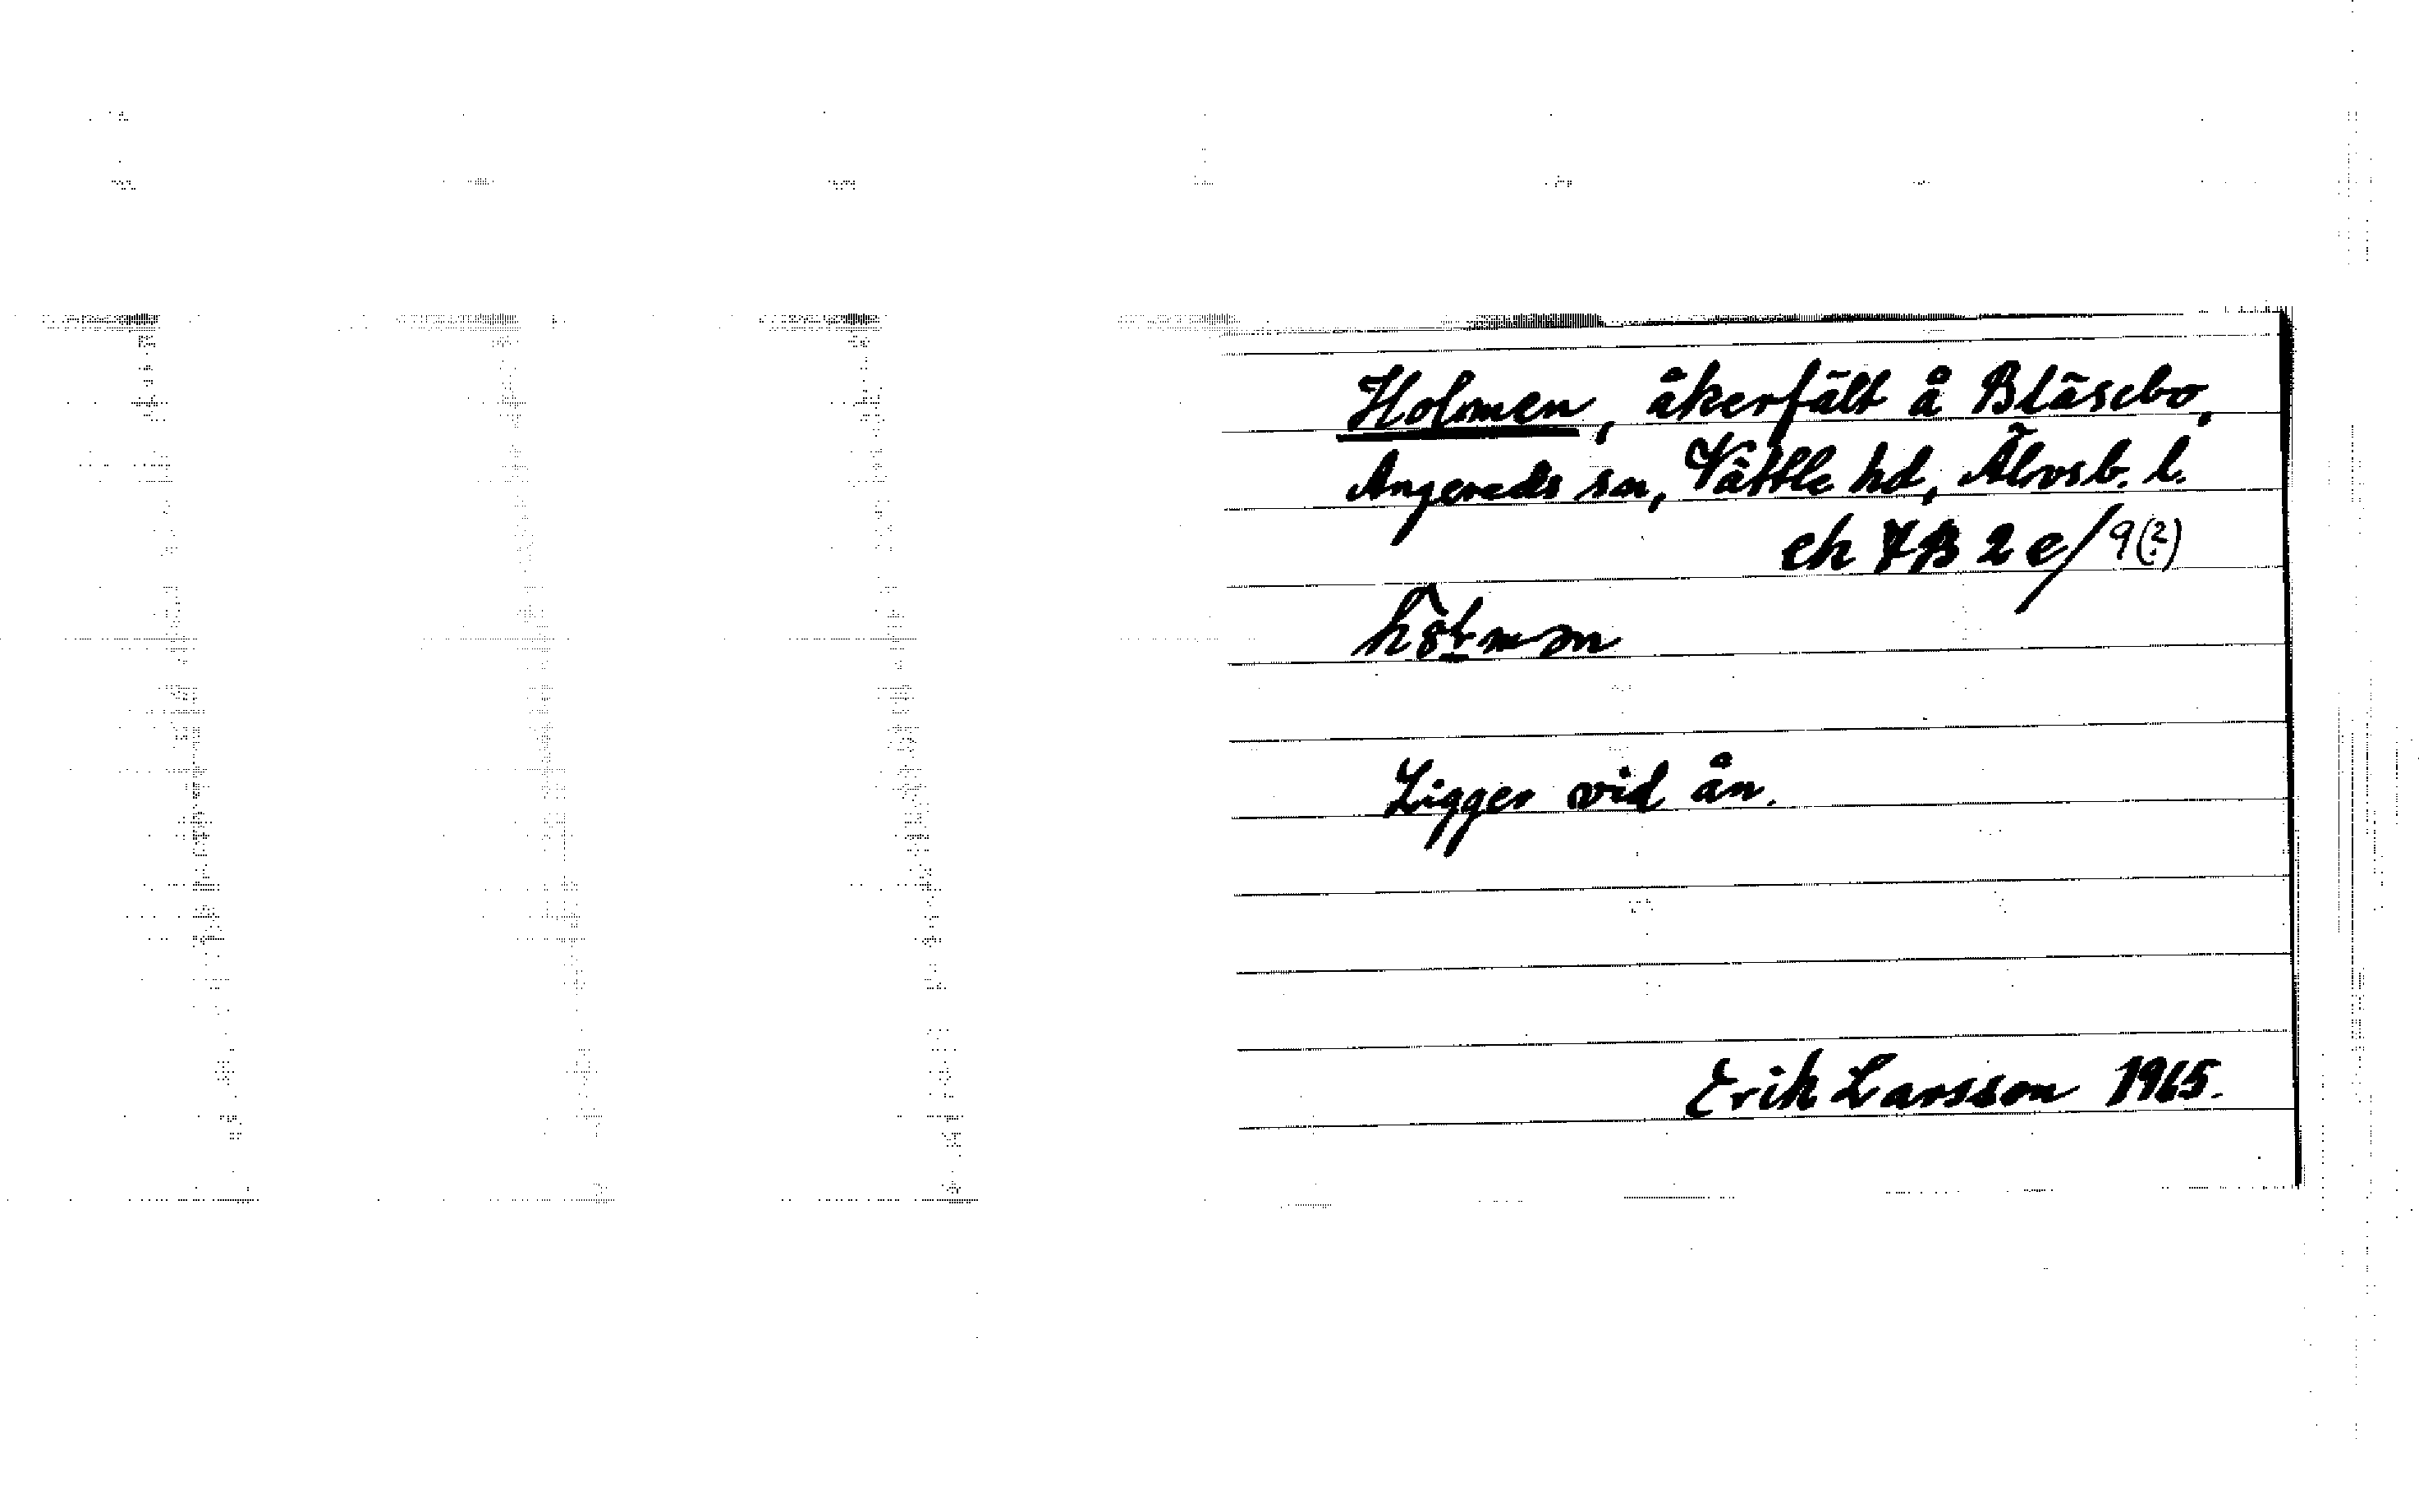 Holmen, åkerfält å Bläsebo,
Angereds sn, Vättle hd, Älvsb. l.
ek 7B 2 e/9(?)
Ligger vid ån.
Erik Larsson 1965.